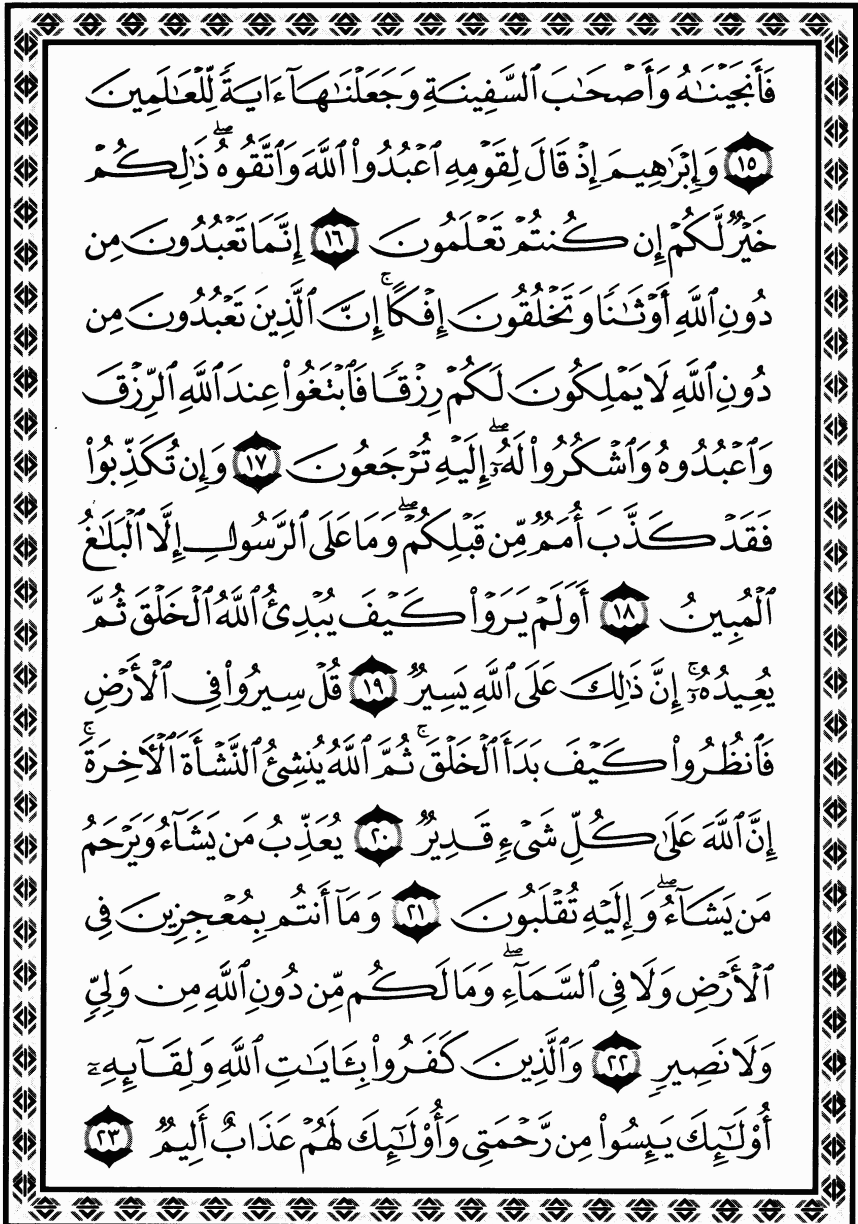 فَأَنجَيْنَٰهُ وَأَصْحَٰبَ ٱلسَّفِينَةِ وَجَعَلْنَٰهَآ ءَايَةً لِّلْعَٰلَمِينَ
١٥ وَإِبْرَٰهِيمَ إِذْ قَالَ لِقَوْمِهِ ٱعْبُدُوا۟ ٱللَّهَ وَٱتَّقُوهُ ۖ ذَٰلِكُمْ
خَيْرٌ لَّكُمْ إِن كُنتُمْ تَعْلَمُونَ ١٦ إِنَّمَا تَعْبُدُونَ مِن
دُونِ ٱللَّهِ أَوْثَٰنًا وَتَخْلُقُونَ إِفْكًا ۚ إِنَّ ٱلَّذِينَ تَعْبُدُونَ مِن
دُونِ ٱللَّهِ لَا يَمْلِكُونَ لَكُمْ رِزْقًا فَٱبْتَغُوا۟ عِندَ ٱللَّهِ ٱلرِّزْقَ
وَٱعْبُدُوهُ وَٱشْكُرُوا۟ لَهُۥٓ ۖ إِلَيْهِ تُرْجَعُونَ ١٧ وَإِن تُكَذِّبُوا۟
فَقَدْ كَذَّبَ أُمَمٌ مِّن قَبْلِكُمْ ۖ وَمَا عَلَى ٱلرَّسُولِ إِلَّا ٱلْبَلَٰغُ
ٱلْمُبِينُ ١٨ أَوَلَمْ يَرَوْا۟ كَيْفَ يُبْدِئُ ٱللَّهُ ٱلْخَلْقَ ثُمَّ
يُعِيدُهُۥٓ ۚ إِنَّ ذَٰلِكَ عَلَى ٱللَّهِ يَسِيرٌ ١٩ قُلْ سِيرُوا۟ فِى ٱلْأَرْضِ
فَٱنظُرُوا۟ كَيْفَ بَدَأَ ٱلْخَلْقَ ۚ ثُمَّ ٱللَّهُ يُنشِئُ ٱلنَّشْأَةَ ٱلْـَٔاخِرَةَ ۚ
إِنَّ ٱللَّهَ عَلَىٰ كُلِّ شَىْءٍ قَدِيرٌ ٢٠ يُعَذِّبُ مَن يَشَآءُ وَيَرْحَمُ
مَن يَشَآءُ ۖ وَإِلَيْهِ تُقْلَبُونَ ٢١ وَمَآ أَنتُم بِمُعْجِزِينَ فِى
ٱلْأَرْضِ وَلَا فِى ٱلسَّمَآءِ ۖ وَمَا لَكُم مِّن دُونِ ٱللَّهِ مِن وَلِىٍّ
وَلَا نَصِيرٍ ٢٢ وَٱلَّذِينَ كَفَرُوا۟ بِـَٔايَٰتِ ٱللَّهِ وَلِقَآئِهِۦٓ
أُو۟لَٰٓئِكَ يَئِسُوا۟ مِن رَّحْمَتِى وَأُو۟لَٰٓئِكَ لَهُمْ عَذَابٌ أَلِيمٌ ٢٣